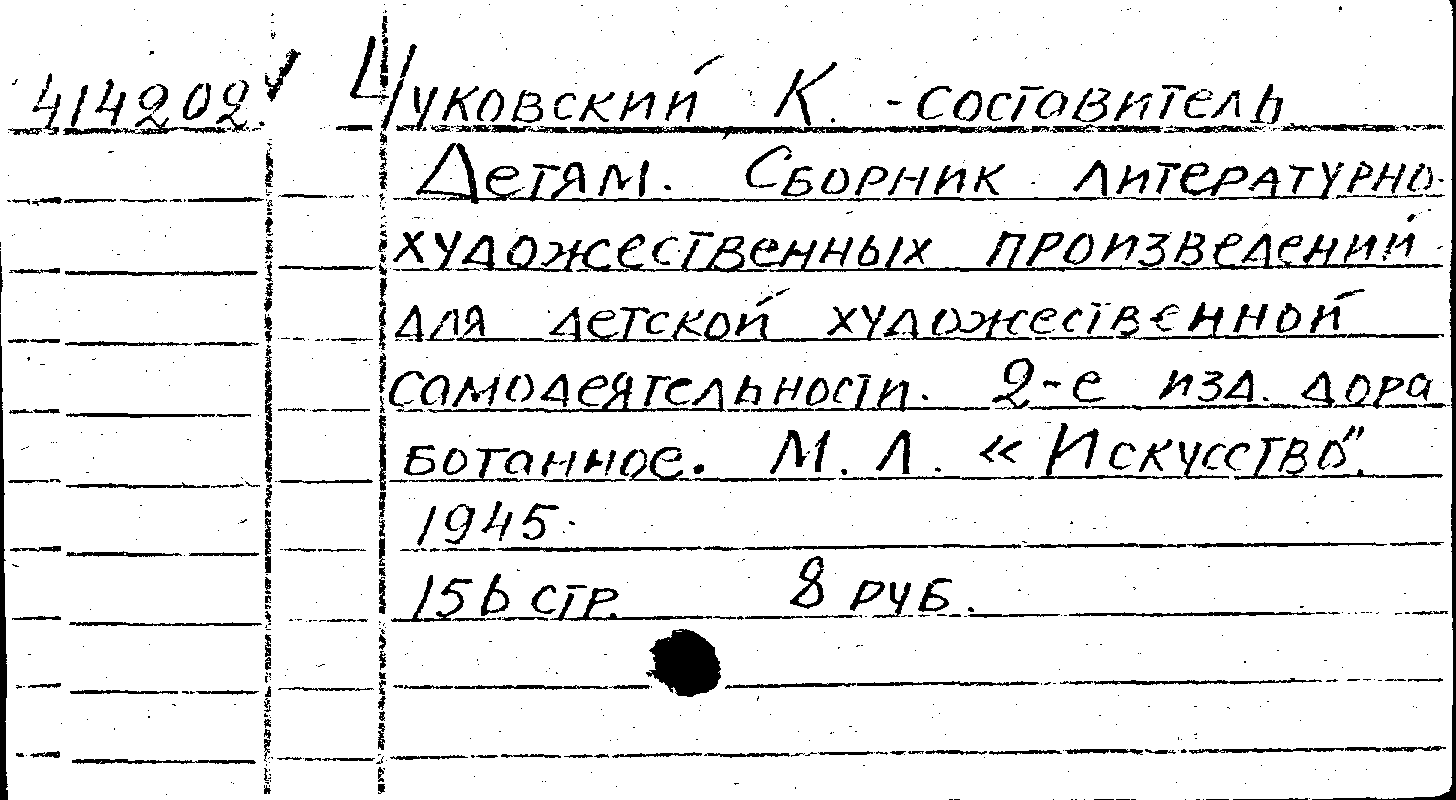 414202. ✓ Чуковский К. - составитель
Детям. Сборник литературно-
художественных произведений
для детской художественной
самодеятельности. 2-е изд. дора
ботанное. М. Л. « Искусство".
1945.
156 стр. 8 руб.